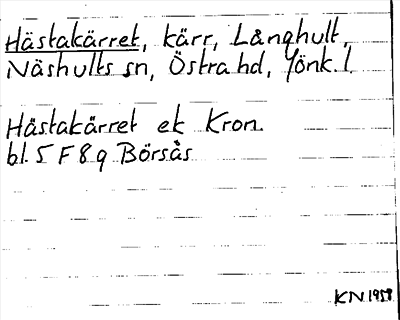 Hästakärret, kärr, Långhult,
Näshults sn, Östra hd, Jönk. l.
Hästakärret ek Kron.
bl. 5 F 8 g Börsås
KN 1958